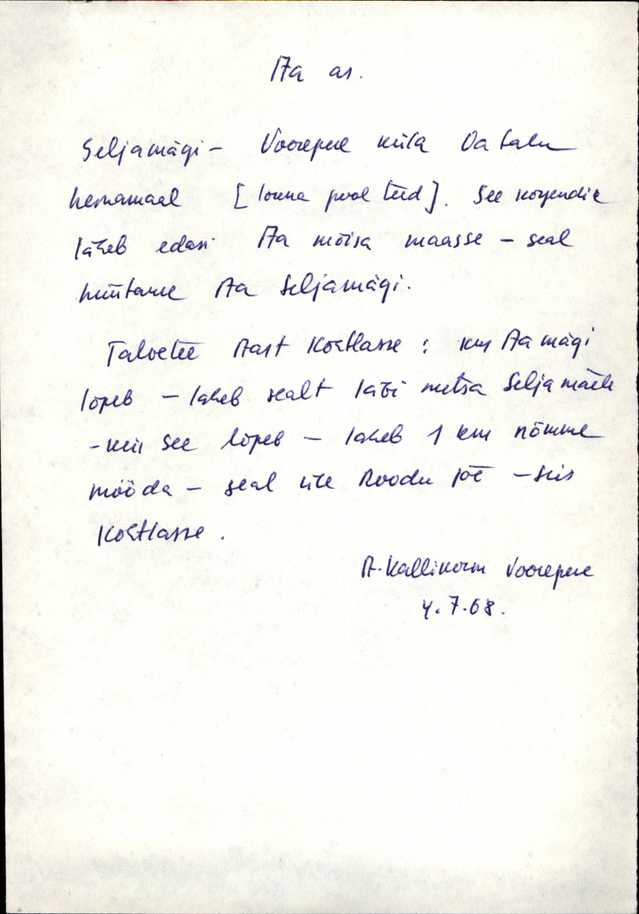 Aa as.
Seljamägi – Voorepere küla Oa talu
heinamaal [lõuna pool teed]. See kõrgendik
läheb edasi Aa mõisa maasse – seal
hüütakse Aa Seljamägi.
Talvetee Aast Kortlasse: kus Aa mägi
lõpeb – läheb sealt läbi metsa Seljamäele
– kus see lõpeb – läheb 1 km nõmme
mööda – seal üle Roodu jõe – siis
Kortlasse.
A. Kallikorm Voorepere
4.7.68.